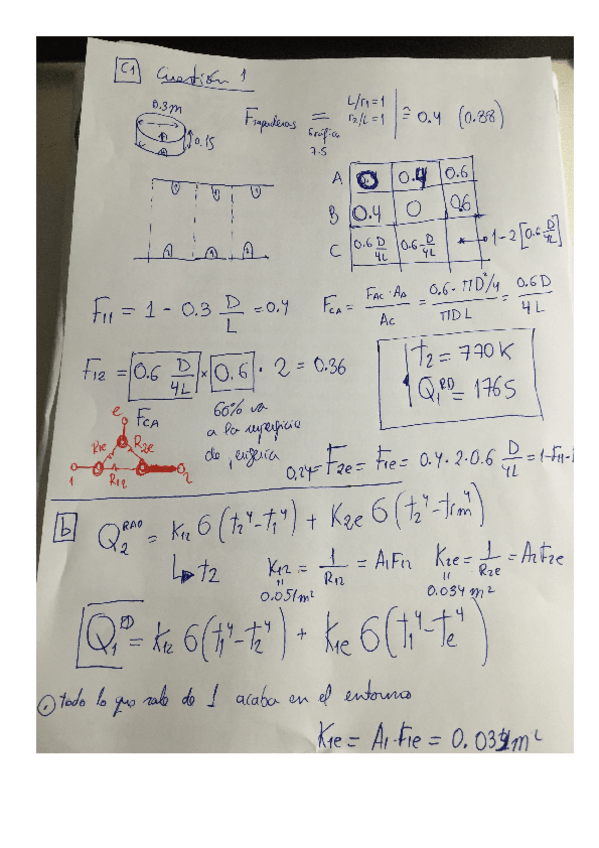 C1 Cuestión 1
0.3m
0.15
F tapaderas = L/r1=1 r2/L=1 ≅ 0.4 (0.38)
Gráfica 7.5
A 0 0.4 0.6
B 0.4 0 0.6
C 0.6 D/4L 0.6 D/4L * 1-2[0.6 D/4L]
F11 = 1 - 0.3 D/L = 0.4
FCA = FAC·AA/AC = 0.6·πD²/4 / πDL = 0.6D/4L
F12 = 0.6 D/4L × 0.6 · 2 = 0.36
FCA
60% va
a la superficie
de
t2 = 770K
Q1^RD = 1765
e
R1e R2e
1 R12 2
0.24 = F2e = F1e = 0.4·2·0.6 D/4L = 1-F11-
b Q2^RAD = K12 σ(t2⁴-t1⁴) + K2e σ(t2⁴-trm⁴)
↳ t2 K12 = 1/R12 = A1F12 K2e = 1/R2e = A2F2e
0.051m² 0.034m²
Q1^RD = K12 σ(t1⁴-t2⁴) + K1e σ(t1⁴-te⁴)
todo lo que sale de 1 acaba en el entorno
K1e = A1·F1e = 0.034m²